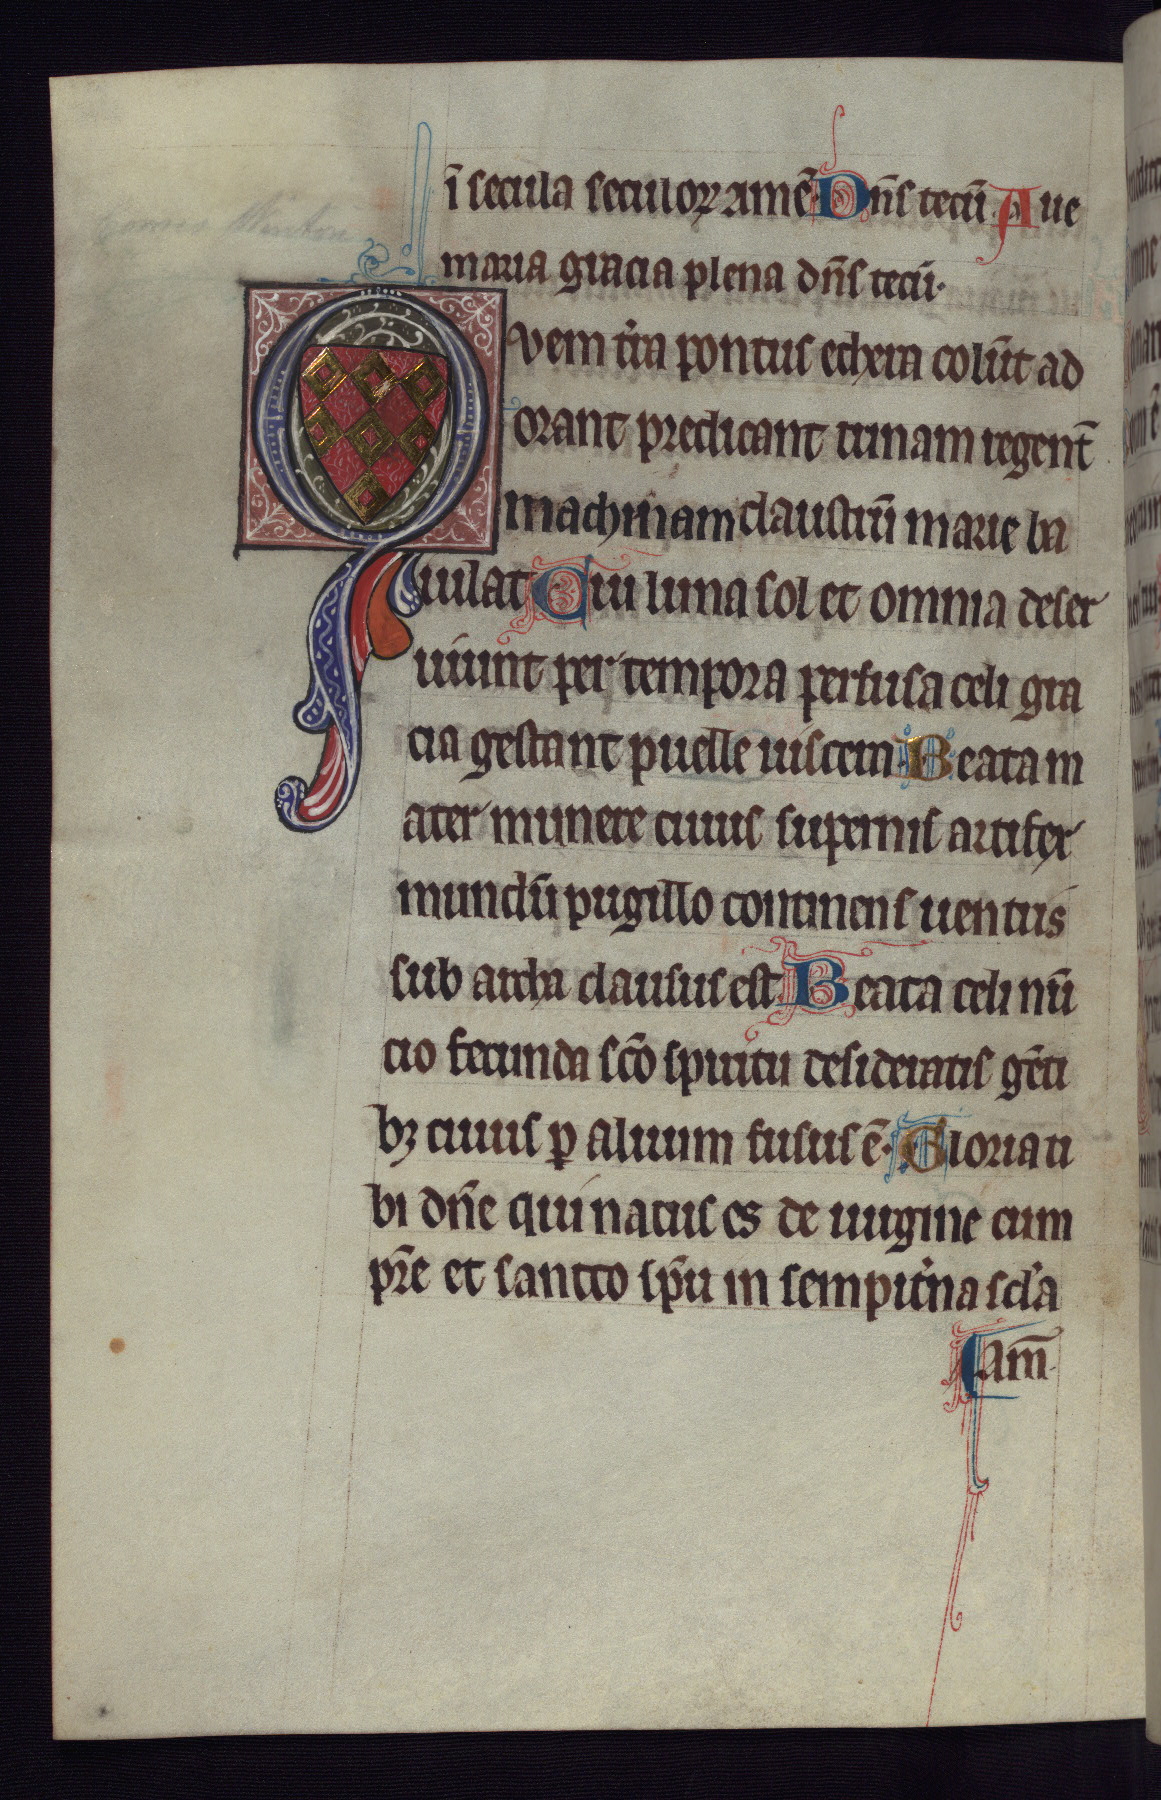 ī secula seculoꝝ amē Dn̄s tecū Aue
maria gracia plena dn̄s tecū·
Quem tͥra pontus ethera colūt ad
orant predicant trinam regent̄
machinam claustrū marie ba
iulat Cui luna sol et omnia deser
uiunt per tempora perfusa celi gra
cia gestant puelle uiscera· Beata m
ater munere cuius supernis artifex
mundū pugillo continens uentris
sub archa clausus est Beata celi nū
cio fecunda sc̄o spiritu desideratis gēti
bꝫ cuius p aluum fusus ē· Gloria ti
bi dn̄e qui natus es de uirgine cum
pr̄e et sancto sp̄u in sempit̄na scl̄a
am̄·